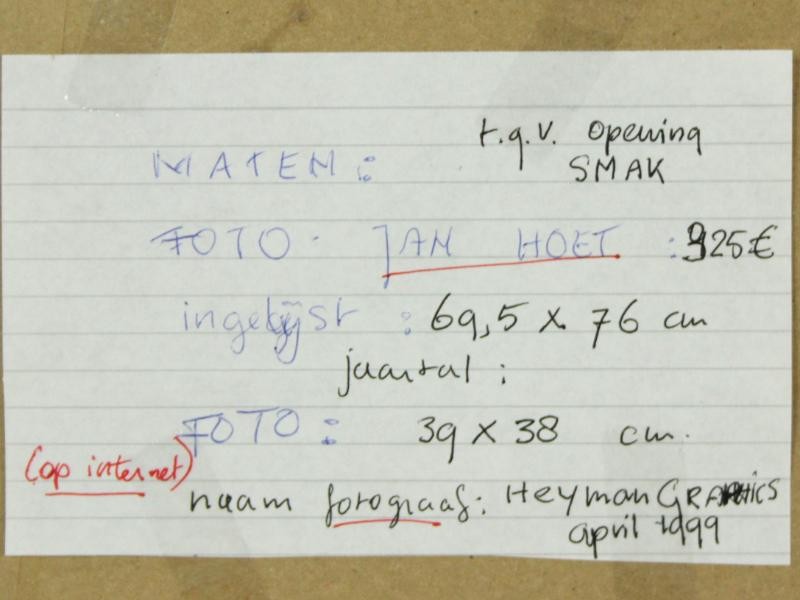 t.g.v. opening
SMAK
MATEN:
FOTO. JAN HOET : 925€
ingelijst : 69,5 x 76 cm
jaartal :
FOTO : 39 x 38 cm.
(op internet)
naam fotograaf: Heyman GRAPHICS
april 1999